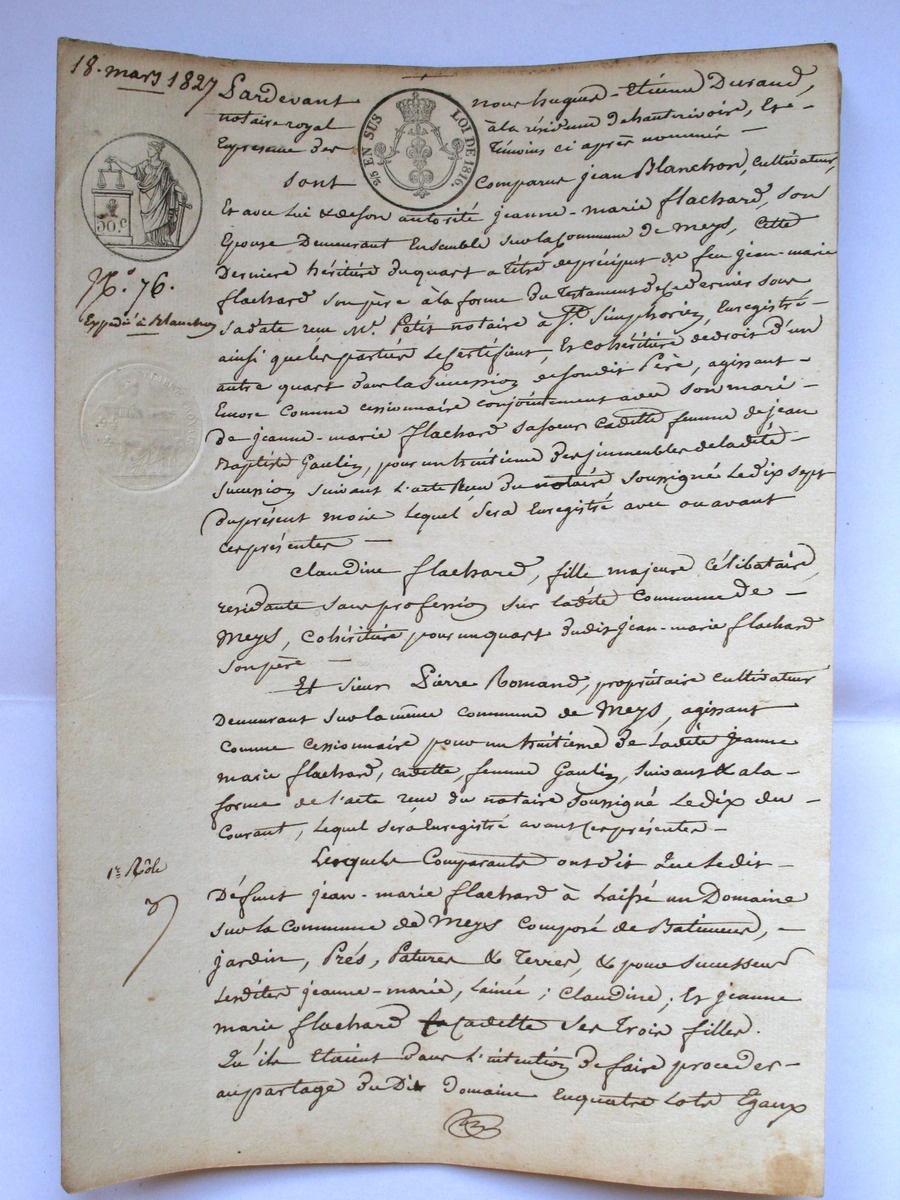 18. mars 1827
Pardevant nous hugues-Etienne Durand,
notaire royal à la résidence dehauterivoire, Et
Enpresence des Témoins ci après nommés —
2/5 EN SUS LOI DE 1816.
50C.
sont Comparus jean Blanchon, cultivateur,
Et avec Lui & deson autorité jeanne-marie flachard, son
Epouse Demeurant Ensemble sur la Commune de Meys, Cette
Derniere héritière duquart a titre depréciput de feu jean-marie
flachard son père à la forme du Testament de ce dernier sous
sa date reçu Me. Petit notaire à St. Simphorien, Enregistré
ainsi queles parties le Certifient, Et cohéritière dedroit d'un
autre quart dans la succession desondit Père, agissant
Encore comme cessionnaire conjointement avec son mari
de jeanne-marie flachard sa soeur cadette femme de jean
Baptiste Gaulin, pour un huitième des immeubles deladite
Succession suivant l'acte Reçu du notaire soussigné Ledix sept
duprésent mois Lequel sera Enregistré avec ou avant
ces présentes —
N.° 76.
Expédié à Blanchon
Claudine flachard, fille majeure célibataire,
residante sans profession sur ladite Commune de
Meys, cohéritière pour un quart dudit jean-marie flachard
Son père —
Et sieur Pierre Romand, propriétaire cultivateur
Demeurant sur la même commune de Meys, agissant
Comme cessionnaire pour un huitième de Ladite jeanne
marie flachard, cadette, femme Gaulin, suivant & a la
forme de l'acte reçu du notaire soussigné Ledix du
Courant, lequel sera Enregistré avant ces présentes —
1er. Rôle
Lesquels Comparants ont dit que ledit
Défunt jean-marie flachard à Laissé un Domaine
sur la Commune de Meys Composé de Batiments,
jardin, Prés, Patures & Terres, & pour successeurs
Lesdites jeanne-marie, Lainée; Claudine; Et jeanne
marie flachard La Cadette ses Trois filles.
Qu'ils Etaient dans L'intention de faire proceder
au partage du Dit Domaine Enquatre Lots Egaux